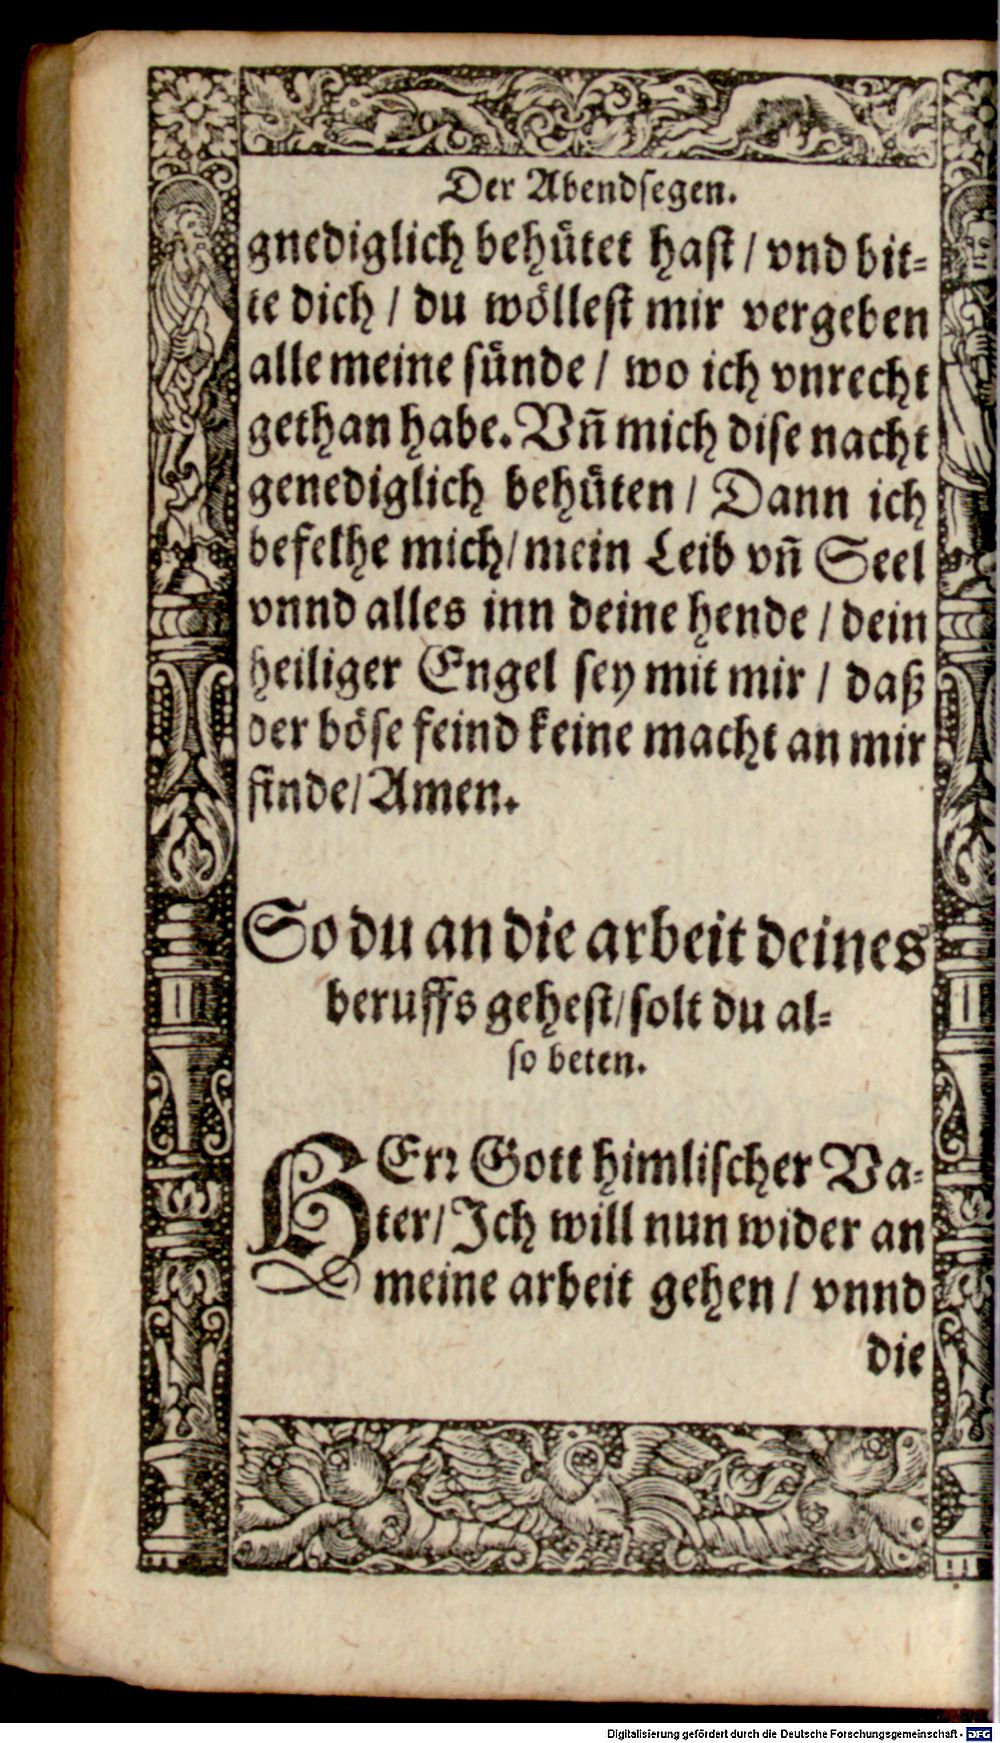 Der Abendsegen.
gnediglich behuͤtet hast / vnd bit⸗
te dich / du woͤllest mir vergeben
alle meine suͤnde / wo ich vnrecht
gethan habe. Vñ mich dise nacht
genediglich behuͤten / Dann ich
befelhe mich / mein Leib vñ Seel
vnnd alles inn deine hende / dein
heiliger Engel sey mit mir / daß
der boͤse feind keine macht an mir
finde / Amen.
So du an die arbeit deines
beruffs gehest / solt du al⸗
so beten.
HErꝛ Gott himlischer Va⸗
ter / Ich will nun wider an
meine arbeit gehen / vnnd
die
Digitalisierung gefördert durch die Deutsche Forschungsgemeinschaft - DFG